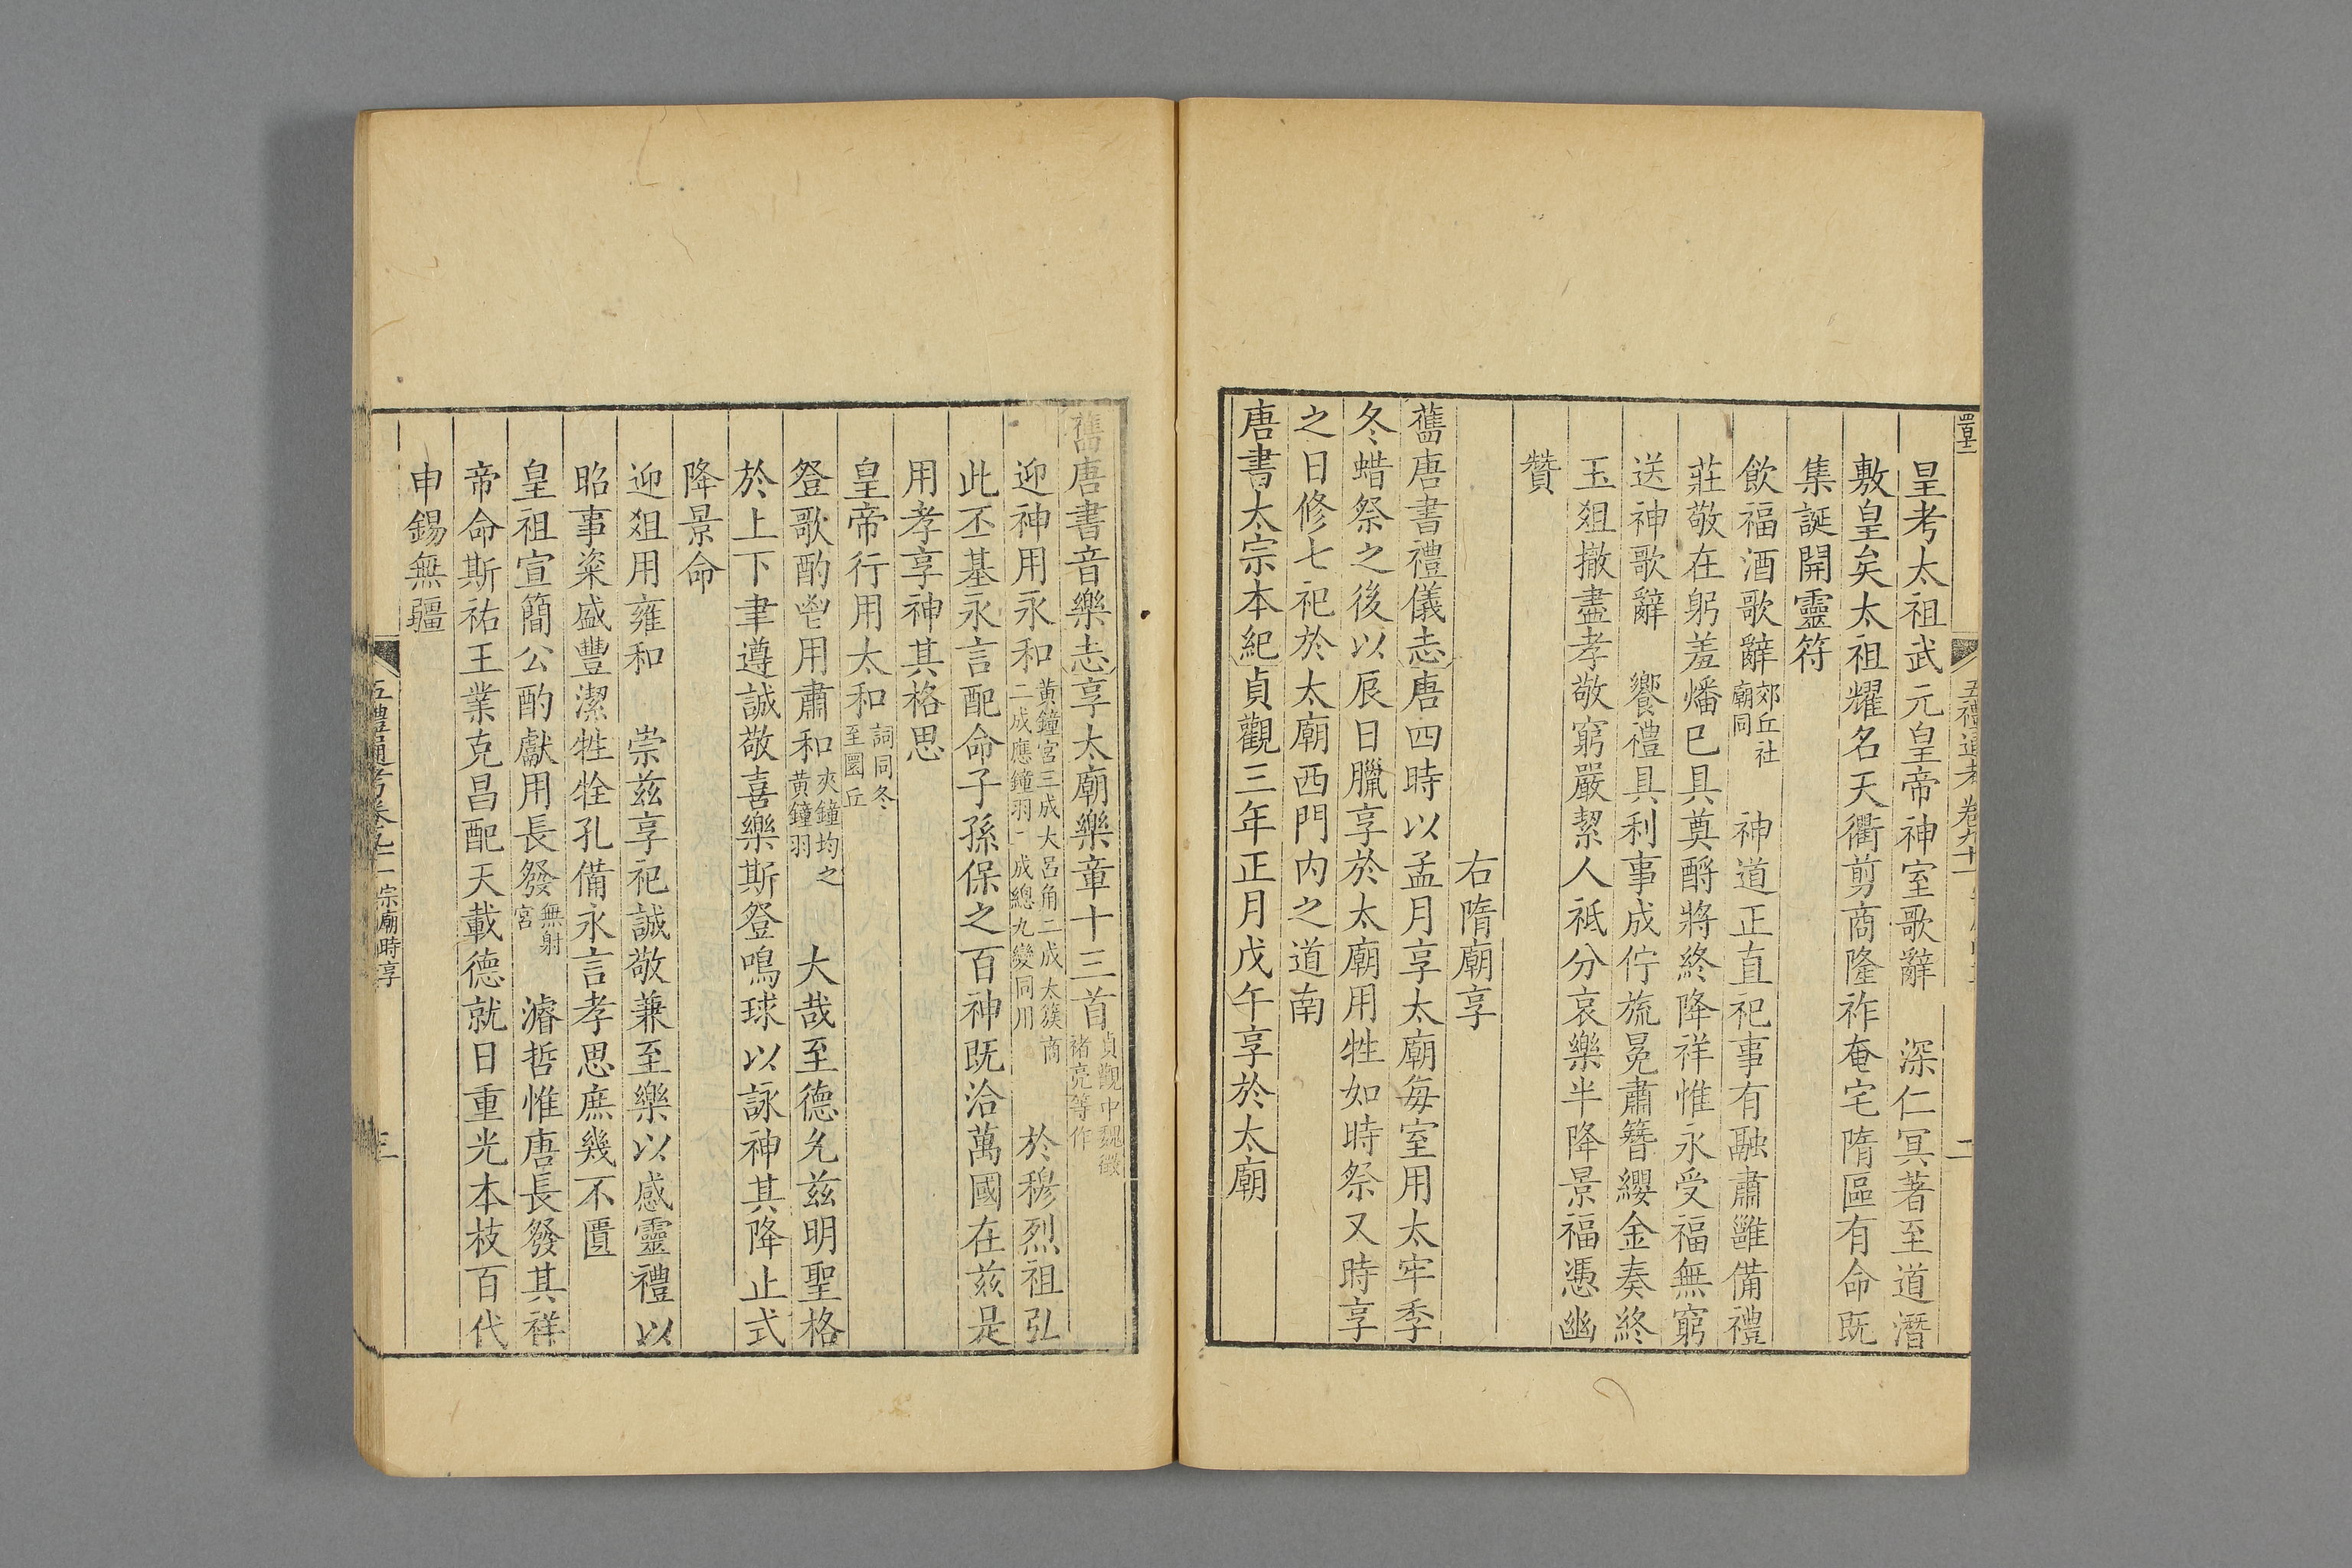 皇考太祖武元皇帝神室歌辭　深仁冥著至道潛
敷皇矣太祖耀名天衢剪商隆祚奄宅隋區有命既
集誕開靈符
飲福酒歌辭郊丘社廟同　神道正直祀事有融肅雝備禮
莊敬在躬羞燔已具奠酹將終降祥惟永受福無窮
送神歌辭　饗禮具利事成佇旒冕肅簪纓金奏終
玉俎撤盡孝敬窮嚴絜人祗分哀樂半降景福憑幽
贊
右隋廟享
舊唐書禮儀志唐四時以孟月享太廟每室用太牢季
冬蜡祭之後以辰日臘享於太廟用牲如時祭又時享
之日修七祀於太廟西門內之道南
唐書太宗本紀貞觀三年正月戊午享於太廟
五禮通考卷九十
二
舊唐書音樂志享太廟樂章十三首貞觀中魏徵褚亮等作
迎神用永和黃鐘宮三成大呂角二成太簇商二成應鐘羽二成總九變同用　於穆烈祖弘
此丕基永言配命子孫保之百神既洽萬國在茲是
用孝享神其格思
皇帝行用太和詞同冬至圜丘
登歌酌鬯用肅和夾鐘均之黃鐘羽　大哉至德允茲明聖格
於上下聿遵誠敬喜樂斯登鳴球以詠神其降止式
降景命
迎俎用雍和　崇茲享祀誠敬兼至樂以感靈禮以
昭事粢盛豐潔牲牷孔備永言孝思庶幾不匱
皇祖宣簡公酌獻用長發無射宮　濬哲惟唐長發其祥
帝命斯祐王業克昌配天載德就日重光本枝百代
申錫無疆
五禮通考卷九十一　宗廟時享
三